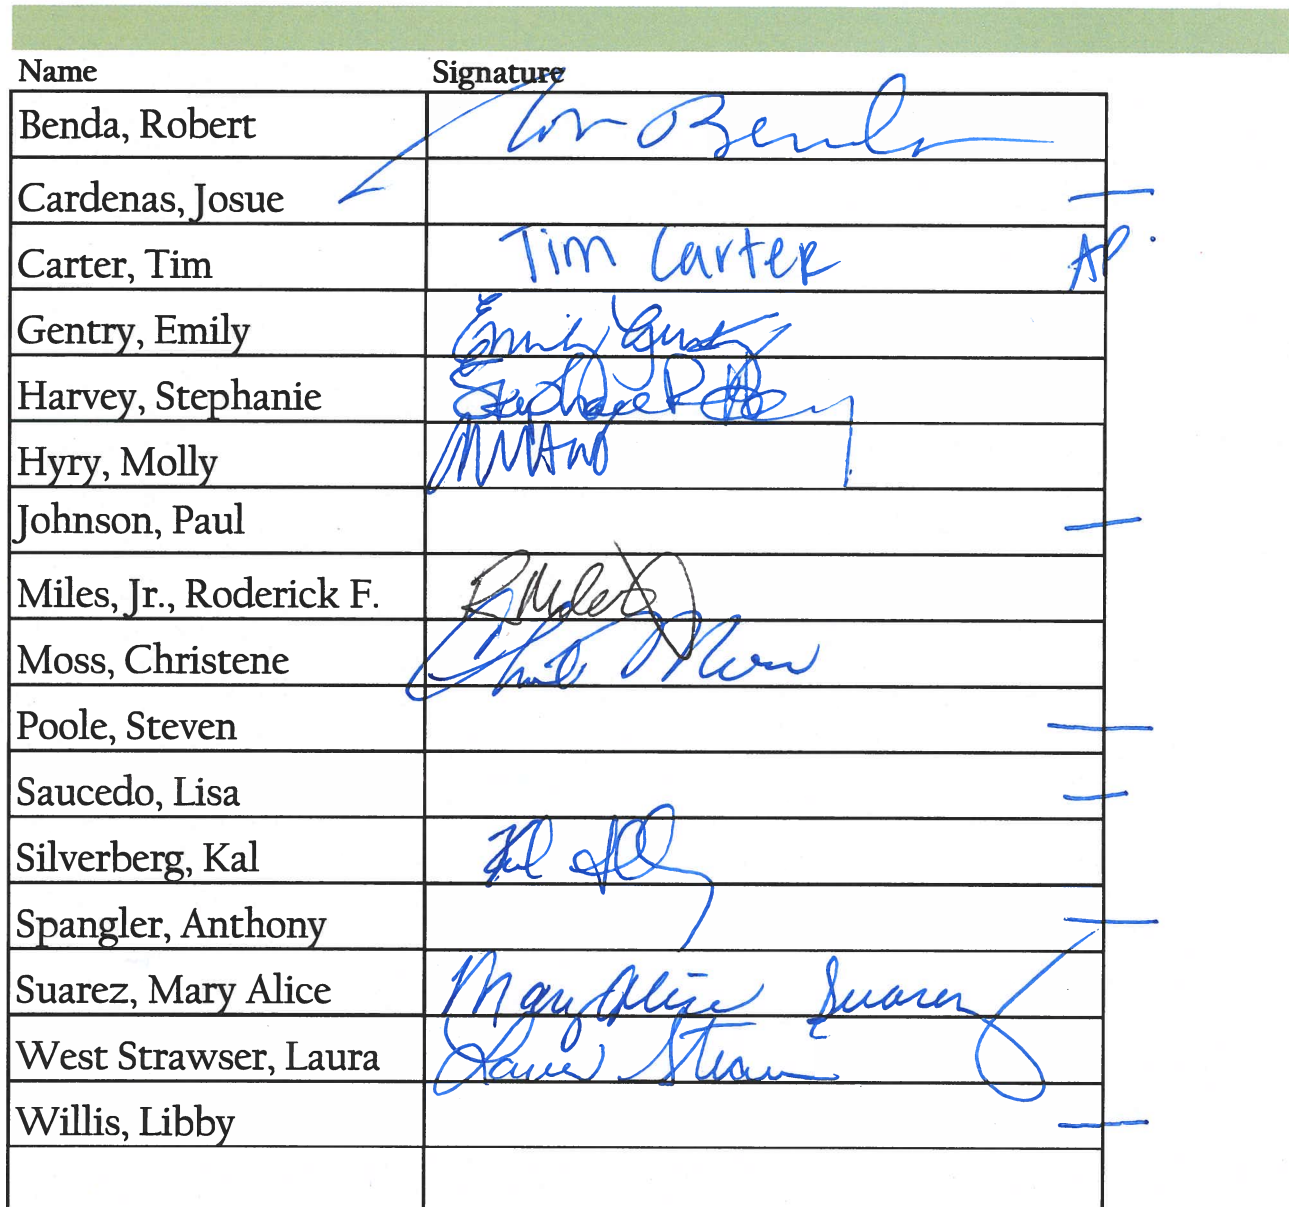 Name Signature
Benda, Robert Benda
Cardenas, Josue —
Carter, Tim Tim Carter AP
Gentry, Emily Emily Gentry
Harvey, Stephanie Stephanie R Harvey
Hyry, Molly
Johnson, Paul —
Miles, Jr., Roderick F.
Moss, Christene Moss
Poole, Steven —
Saucedo, Lisa —
Silverberg, Kal Kal
Spangler, Anthony —
Suarez, Mary Alice Mary Alice Suarez
West Strawser, Laura Laura
Willis, Libby —